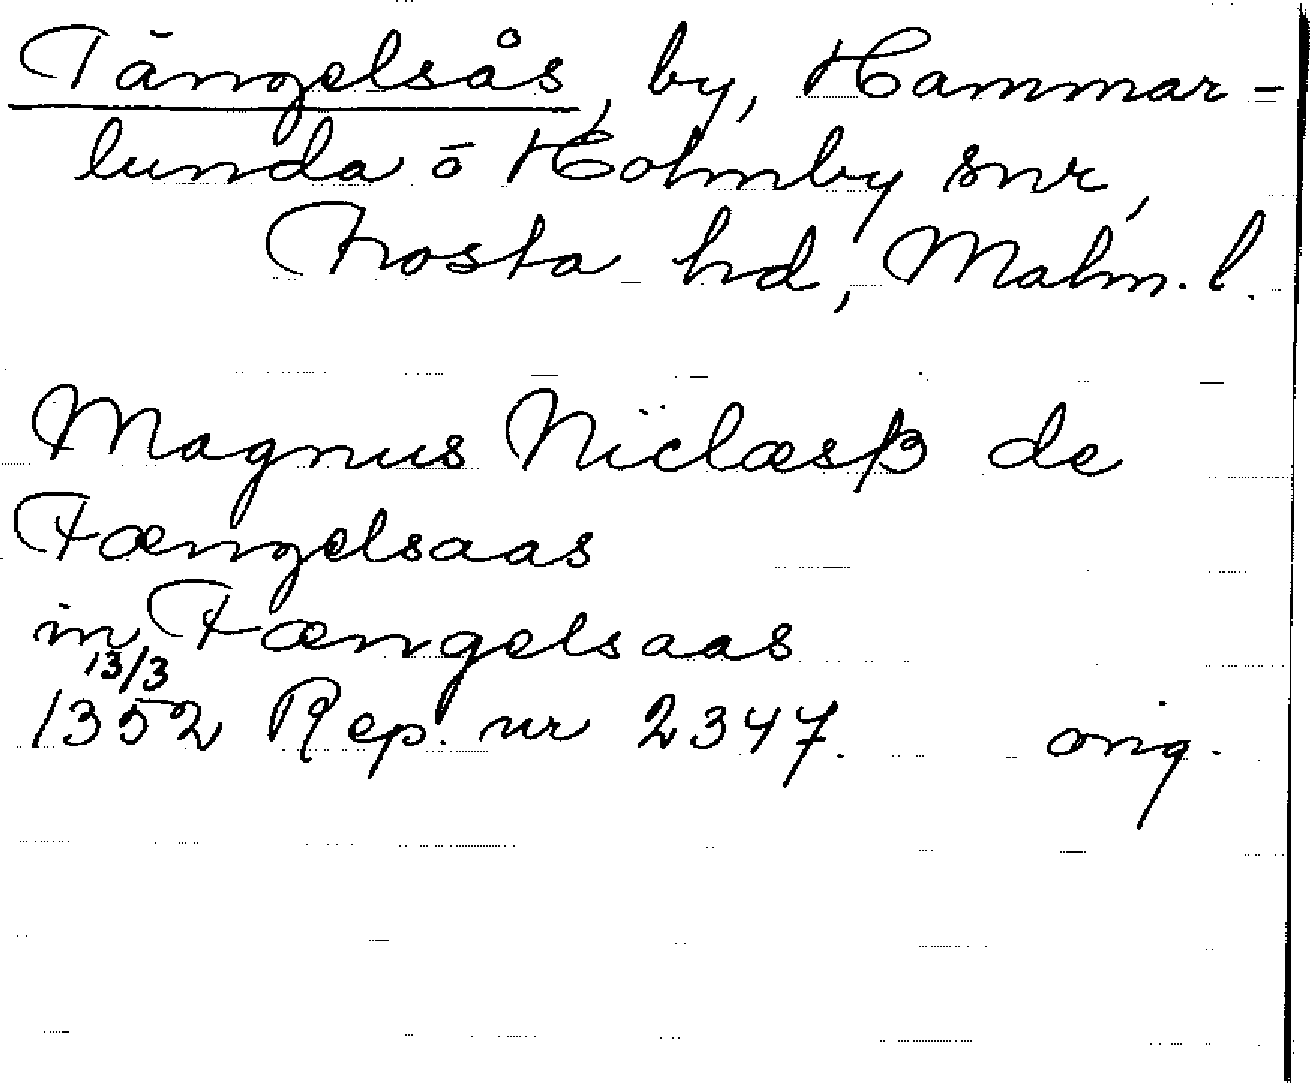 Tängelsås, by, Hammar-
lunda o Holmby snr,
Frosta hd, Malm. l.
Magnus Niclæsβ de
Tængelsaas
in Tængelsaas
13/3
1352 Rep. nr 2347. orig.